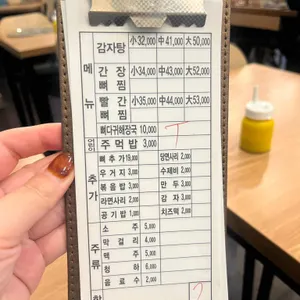 감자탕 小32,000 中41,000 大50,000
메뉴
간장뼈찜 小34,000 中43,000 大52,000
빨간뼈찜 小35,000 中44,000 大53,000
뼈다귀해장국 10,000
주먹밥 3,000
추가
뼈추가 19,000 당면사리 2,000
우거지 3,000 수제비 2,000
볶음밥 3,000 만두 3,000
라면사리 2,000 감자 3,000
공기밥 1,000 치즈떡 2,000
주류
소주 5,000
막걸리 4,000
맥주 5,000
청하 6,000
음료수 2,000
합